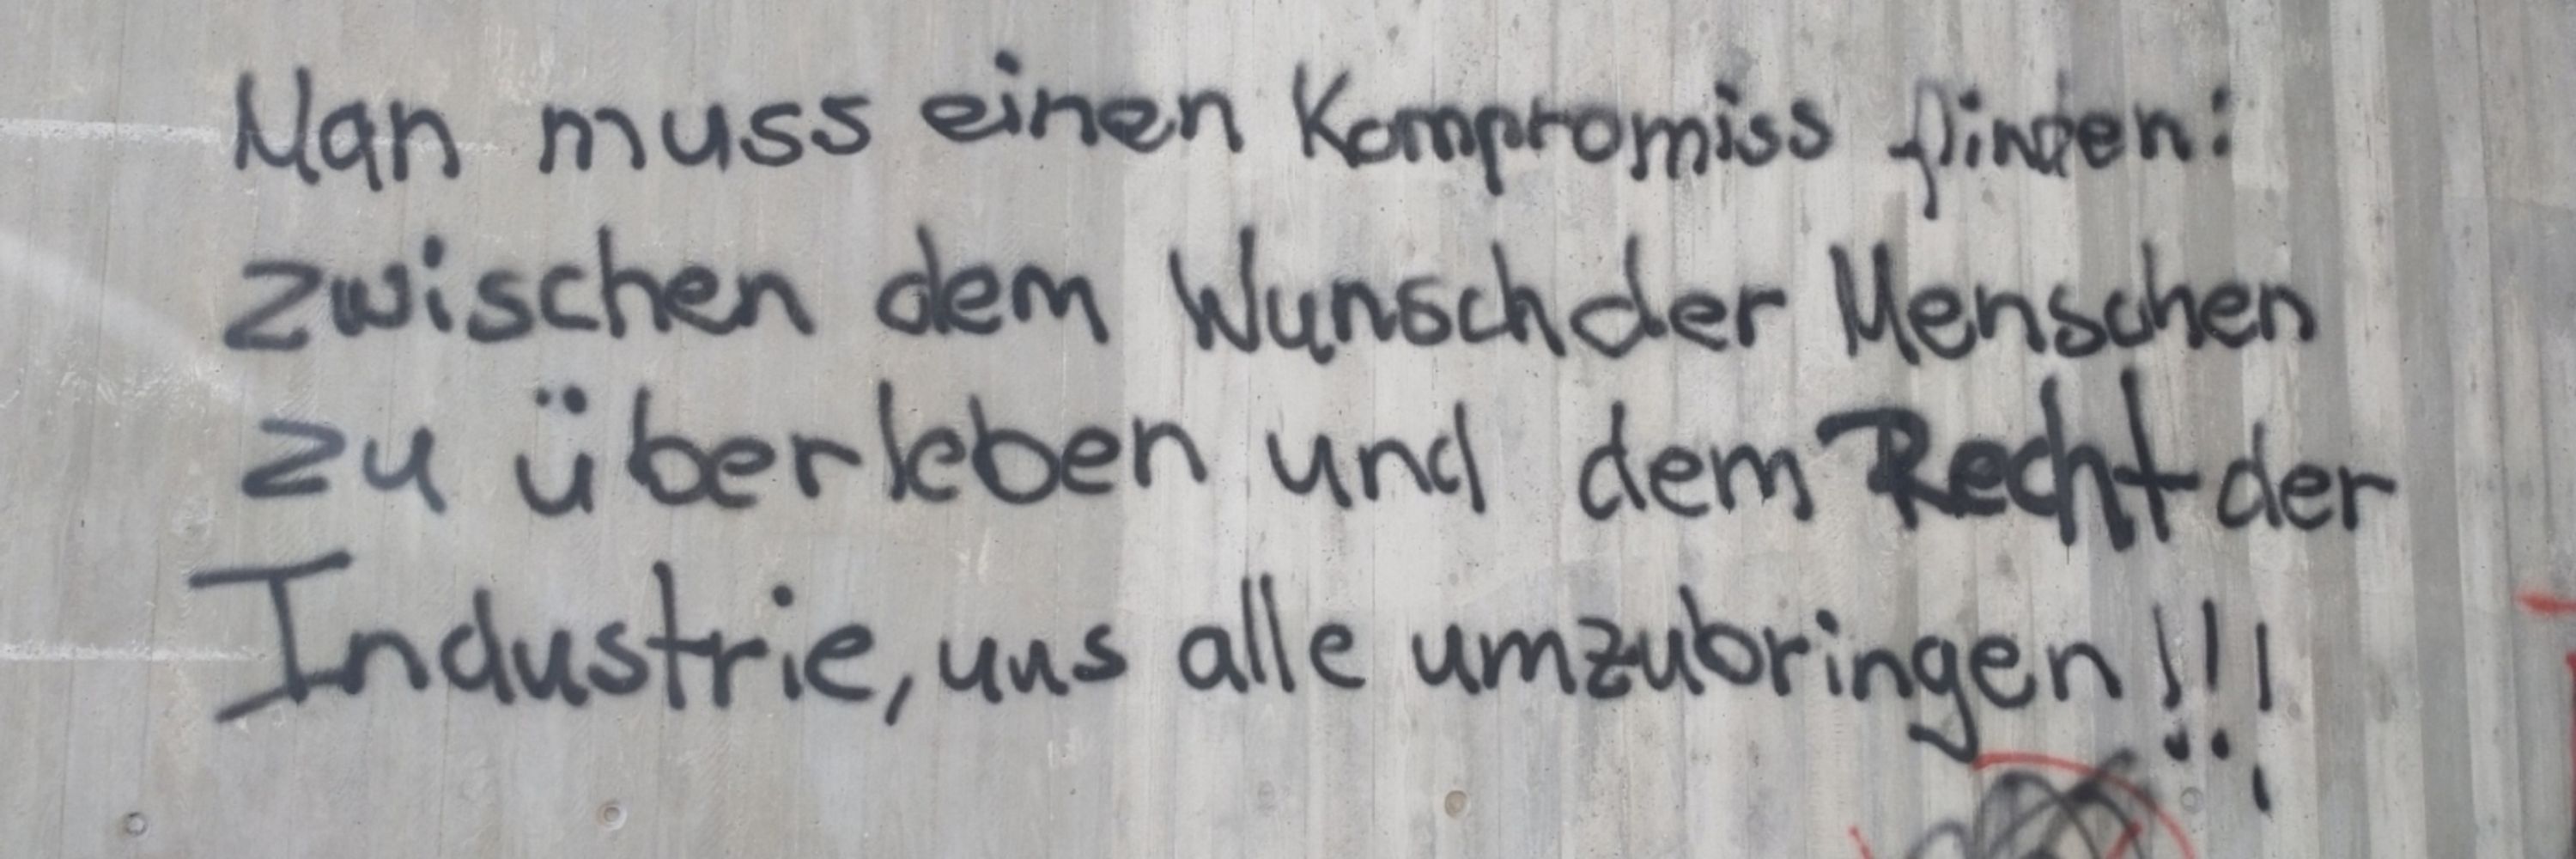 Man muss einen Kompromiss finden:
zwischen dem Wunsch der Menschen
zu überleben und dem Recht der
Industrie, uns alle umzubringen!!!